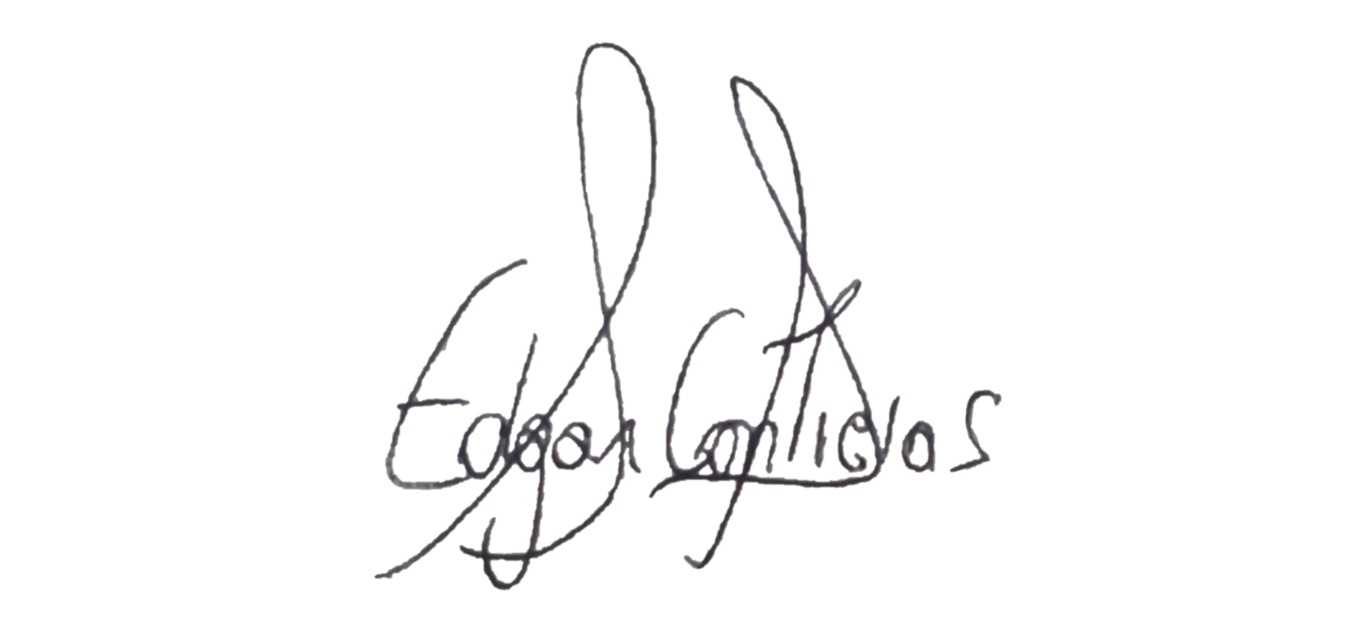 Edgar Contreras